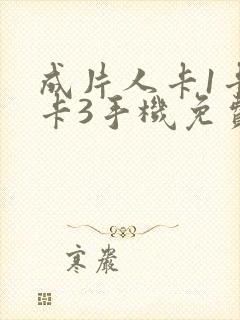 成片人卡1卡
卡3手機免費
寒嚴